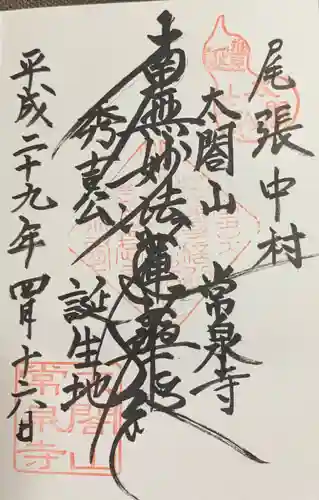 尾張中村
太閤山 常泉寺
南無妙法蓮華経
秀吉公 誕生地
平成二十九年四月十六日
太閤山
常泉寺